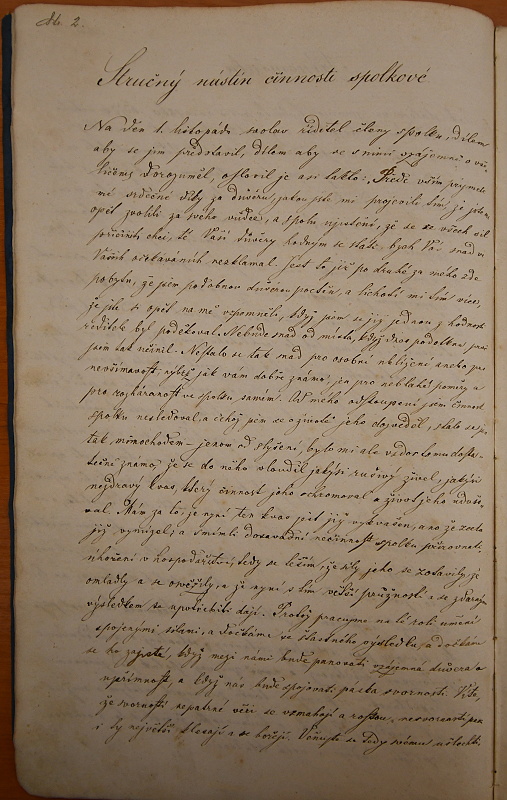 2.
Stručný nástin činnosti spolkové
Na den 1. listopadu svolav ředitel členy spolku, dílem
aby se jim představil, dílem aby se s nimi vzájemně o
dorozuměl, oslovil je asi takto: „Přede vším přijměte
mé srdečné díky za důvěru, jakou jste mi projevili tím, že jste mne
opět zvolili za svého vůdce, a spolu ujištění, že se ze všech sil
přičiniti chci, té Vaší důvěry hodným se státi, bych Vás snad v
Vašich očekáváních nezklamal. Jest to již po druhé za mého zde
pobytu, že jsem podobnou důvěrou poctěn, a lichotí mi tím více,
že jste si opět na mě vzpomněli, když jsem se již jednou z hodnosti
ředitele byl poděkoval. Nebude snad od místa, když dnes podotknu proč
jsem tak učinil. Nestalo se tak snad pro osobní ublížení aneb pro
nevšímavost, nýbrž jak vám dobře známo, jen pro neblahé poměry a
pro rozháranost ve spolku samém. Od mého odstoupení jsem činnost
spolku nesledoval, a čehož jsem se o životě jeho dozvěděl, stalo se jen
tak, mimochodem – jenom od slyšení, bylo mi ale vždor tomu dosta-
tečně známo, že se do něho vloudil jakýsi rušivý živel, jakýsi
nezdravý kvas, který činnost jeho ochromoval a život jeho udušo-
val. Mám za to, že nyní ten kvas jest již vykvašen, ano že zcela
již vymizel, a smím-li dosavadní nečinnost spolku přirovnati
úhoření v hospodářství, tedy se těším, že síly jeho se zotavily, že
omládly a se osvěžily, a že nyní s tím větší pružností a se zdarem
výsledkem se upotřebiti dají. Protož pracujme na té roli umění
spojenými silami, a dočkáme se šťastného výsledku, a dočkáme
se ho zajisté, když mezi námi bude panovati vzájemná důvěra a
upřímnost, a když nás bude spojovati páska svornosti. Víte,
že svorností nepatrné věci se vzmahají a rostou, nesvorností pak
i ty největší klesají a se boří. Věnujte se tedy svému ušlechti-